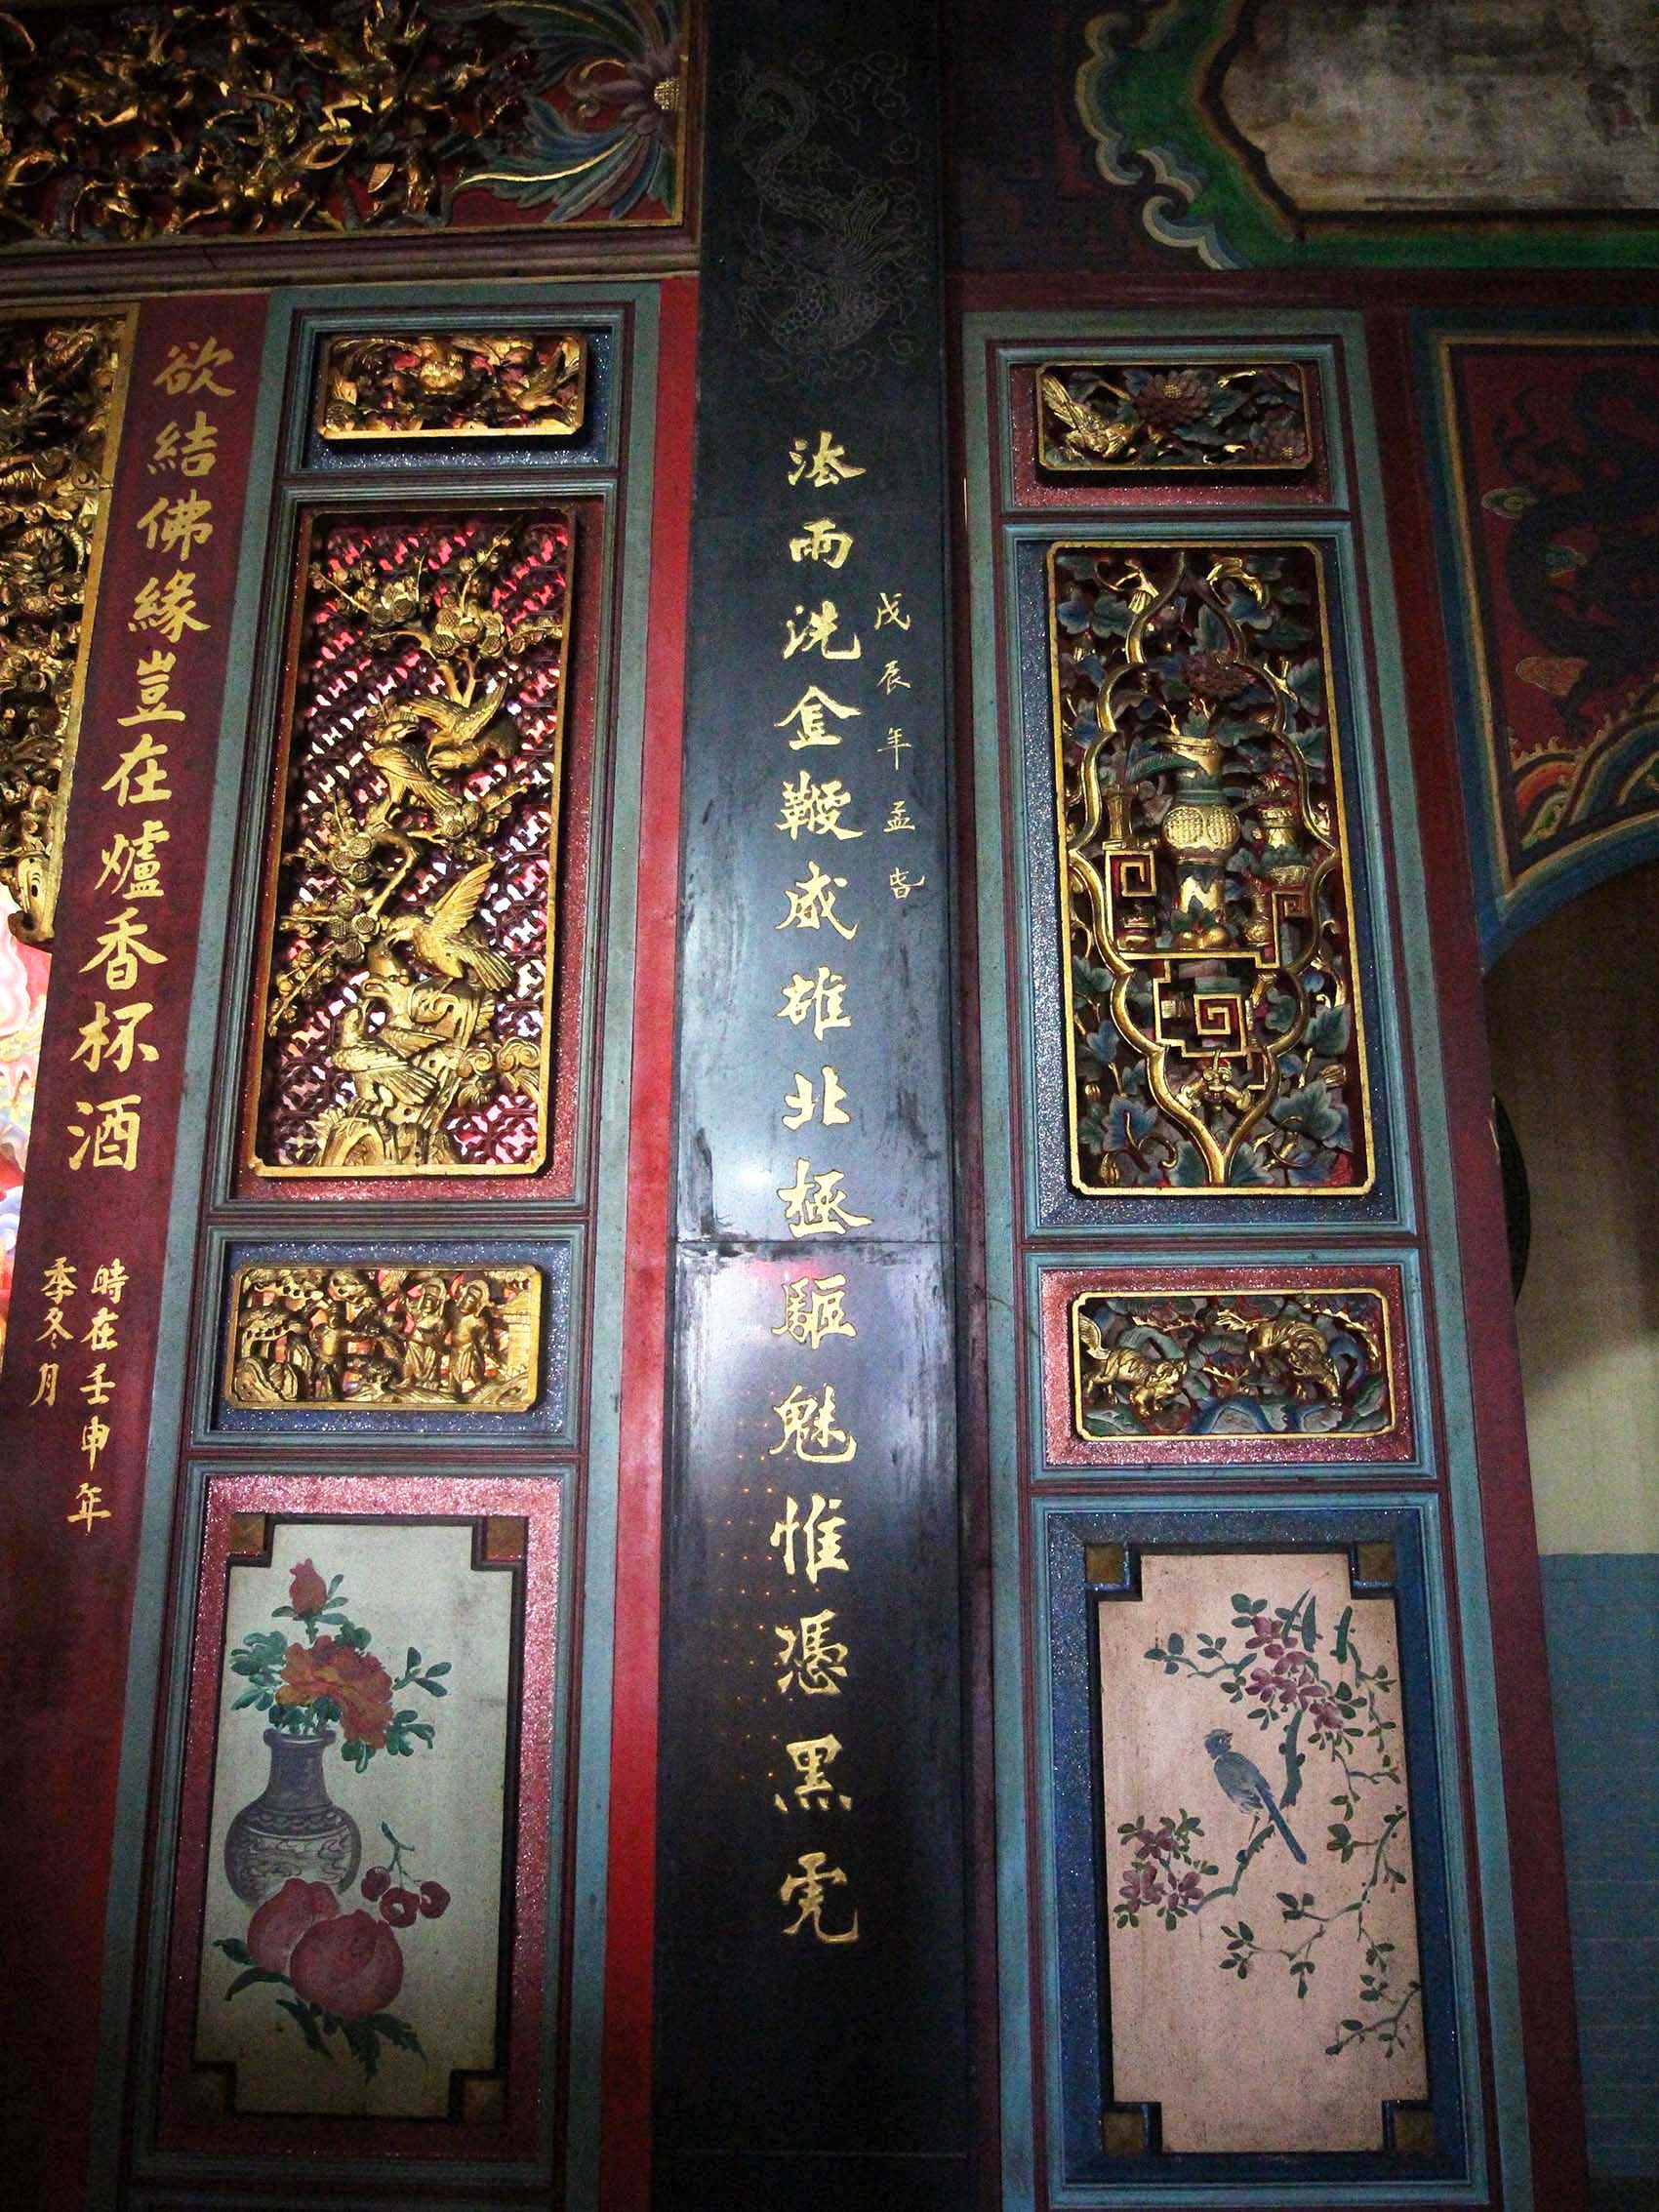 戊辰年孟春
法雨洗金鞭威雄北極驅魅惟憑黑虎
欲結佛緣豈在爐香杯酒
時在壬申年
季冬月